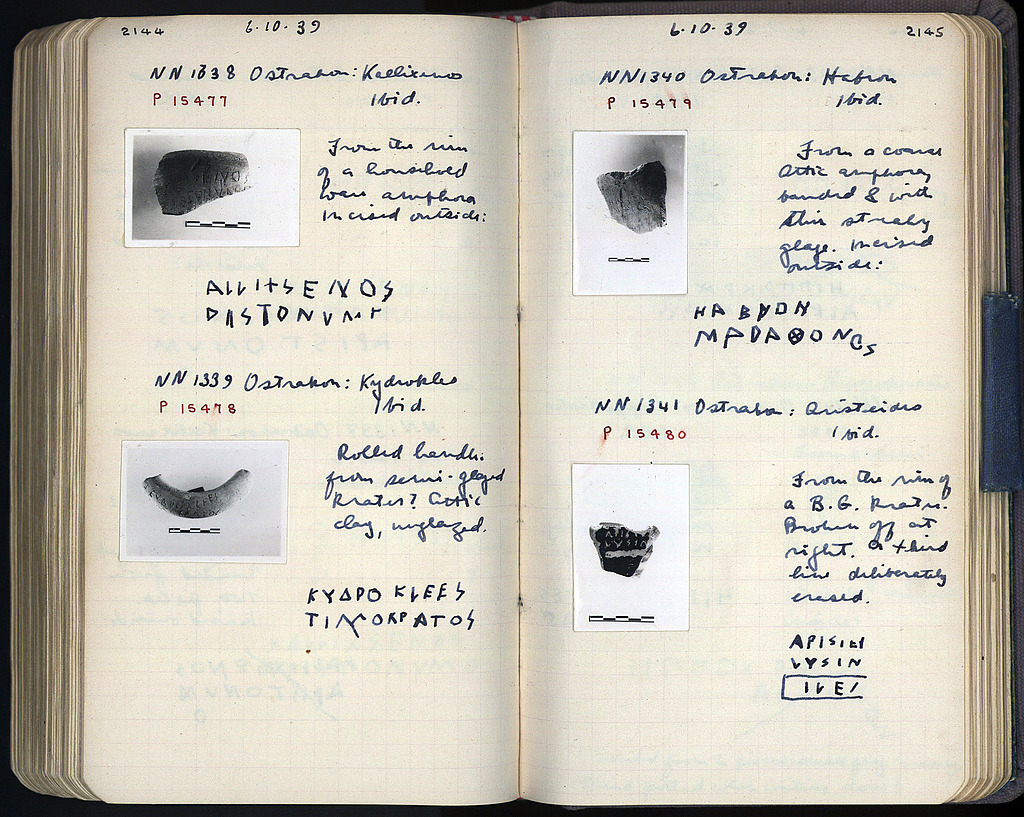 2144
6.10.39
NN 1338 Ostrakon: Kallixenos
P 15477
Ibid.
From the rim
of a household
ware amphora
Incised outside:
NN 1339 Ostrakon: Kydrokles
P 15478
Ibid.
Rolled handle
from semi-glazed
Krater? Attic
clay, unglazed.
ΚΥΔΡΟ ΚLΕΕS
ΤΙΜΟΚΡΑΤΟS
6.10.39
2145
NN1340 Ostrakon: Habron
P 15479
Ibid.
From a coarse
Attic amphora,
banded & with
thin streaky
glaze. Incised
outside:
ΗΑΒΡΟΝ
ΜΑΡΑ⊗ΟΝ
NN 1341 Ostrakon: Aristeides
P 15480
Ibid.
From the rim of
a B.G. Krater.
Broken off at
right. A third
line deliberately
erased.
ΑΡΙSΤΕΙ
LΥSΙΝ